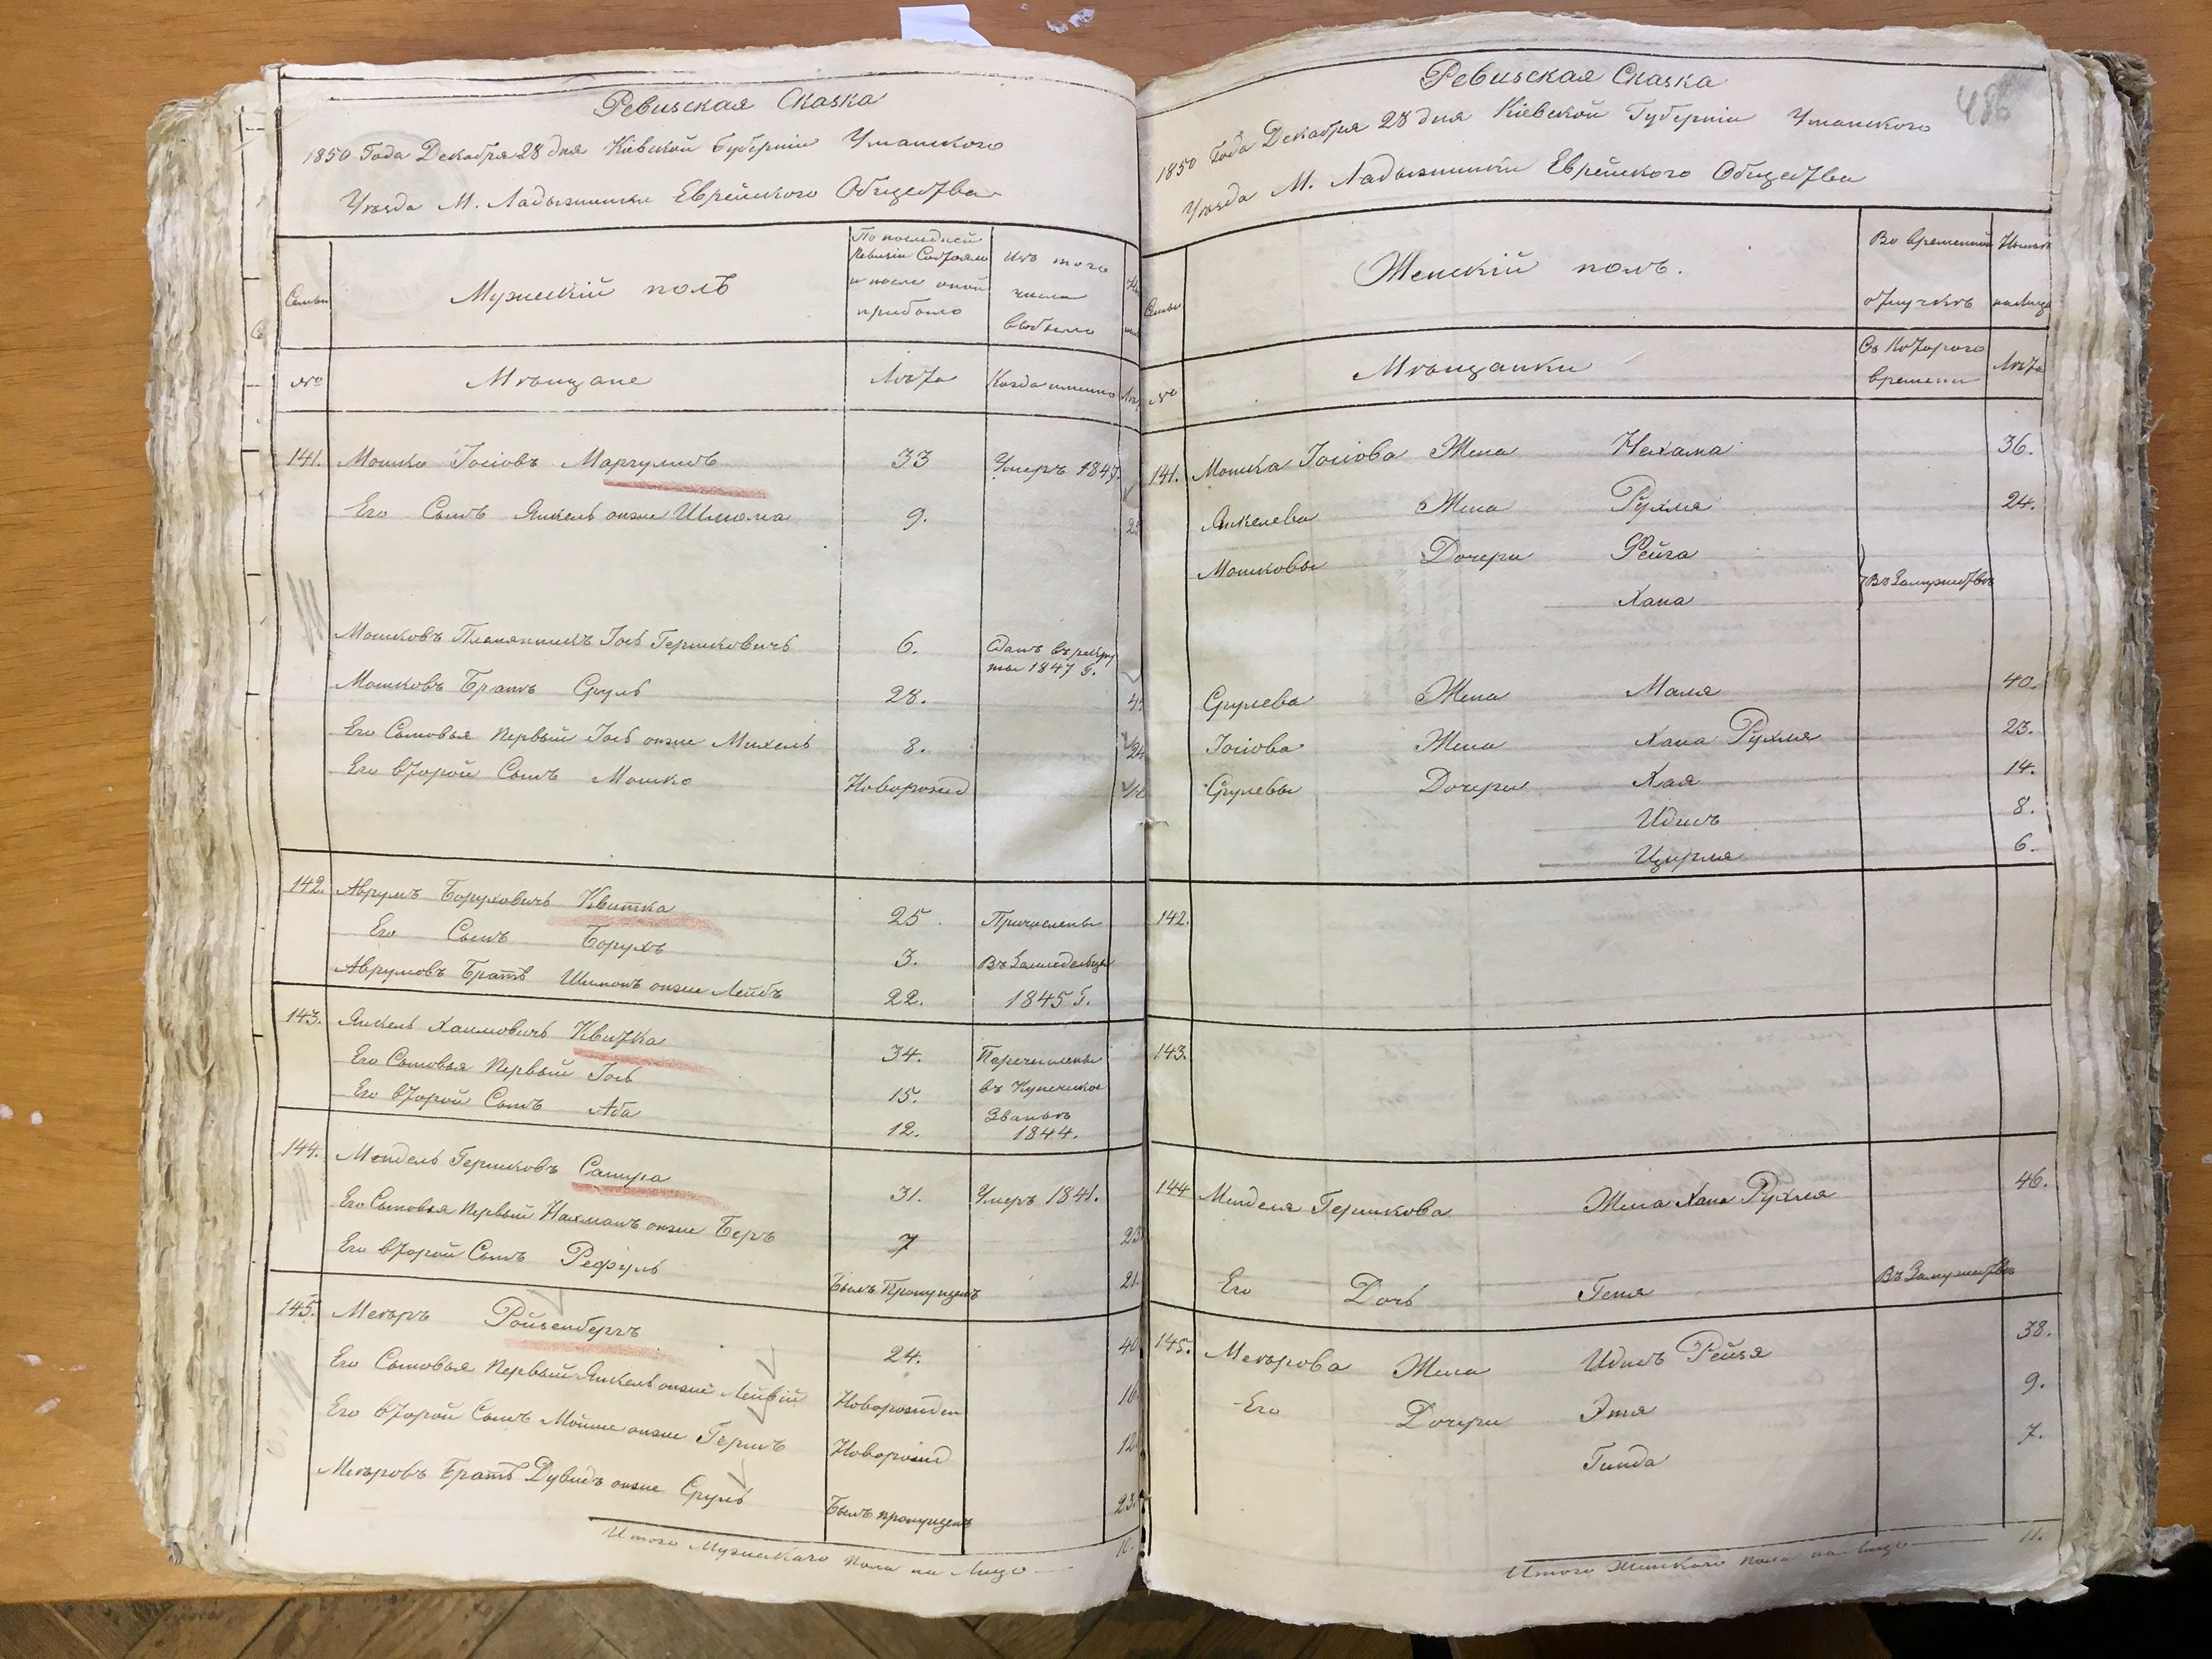 Ревизская Сказка
1850 Года Декабря 28 дня Кіевской Губерніи Уманскаго
Уѣзда М. Ладыжинки Еврейского Общества
Семьи
Мужескій полъ
По последней
Ревизіи Состояло
и после оной
прибыло
Изъ того
числа
выбыло
№
Мѣщане
Лѣта
Когда именно
141. Мошко Іосіовъ Маргулисъ 33 Умеръ 1847.
Его Сынъ Янкель онже Шлиома 9.
Мошковъ Племянникъ Іось Гершковичь 6. Сданъ въ рекру
ты 1847 г.
Мошковъ Братъ Сруль 28.
Его Сыновья Первый Іось онже Михель 8. 24
Его второй Сынъ Мошко Новорожд
142. Аврумъ Боруховичь Квитка 25. Причислены
Его Сынъ Борухъ 3. Въ Земледельцы
Аврумовъ Братъ Шимонъ онже Лейбъ 22. 1845 г.
143. Янкель Хаимовичь Квитка 34. Перечислены
Его Сыновья Первый Іось 15. въ Купеческое
Его второй Сынъ Аба 12. Званіе
1844.
144. Мендель Гершковъ Сапира 31. Умеръ 1841.
Его Сыновья Первый Нахманъ онже Беръ 7 23
Его второй Сынъ Рефуль Былъ Пропущенъ 21.
145. Меэръ Ройзенбергъ 24. 40
Его Сыновья Первый Янкель онже Лейвій Новорожден 16.
Его второй Сынъ Мойше онже Гершъ Новорожд 12.
Меэровъ Братъ Дувидъ онже Сруль Былъ пропущенъ 23.
Итого Мужескаго пола на Лицо 10.
486
Ревизская Сказка
1850 Года Декабря 28 дня Кіевской Губерніи Уманского
Уѣзда М. Ладыжинки Еврейского Общества
Семьи
Женскій полъ.
Во временной
отлучкѣ
Ныне
на лицо
№
Мѣщанки
Съ Которого
времени
Лѣта
141. Мошка Іосіова Жена Нехама 36.
Янкелева Жена Рухля 24.
Мошковы Дочери Фейга
Хана
Въ Замужествѣ
Срулева Жена Маля 40.
Іосіова Жена Хана Рухля 23.
Срулевы Дочери Хая 14.
Идись 8.
Цирля 6.
142.
143.
144 Менделя Гершкова Жена Хана Рухля 46.
Его Дочь Геня Въ Замужествѣ
145. Меэрова Жена Идись Рейзя 38.
Его Дочери Этя 9.
Гинда 7.
Итого Женскаго пола на лицо 11.